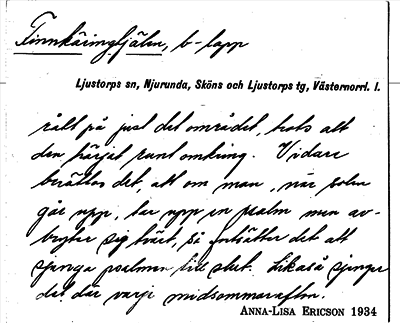 Finnkäringfjälen, b-lapp
Ljustorps sn, Njurunda, Sköns och Ljustorps tg, Västernorrl. l.
rått på just det området, trots att
den härjat runt omkring. Vidare
berättas det, att om man, när solen
går upp, tar upp en psalm men av-
bryter sig tvärt, så fortsätter det att
sjunga psalmen till slut. Likaså sjunger
det där varje midsommarafton.
ANNA-LISA ERICSON 1934